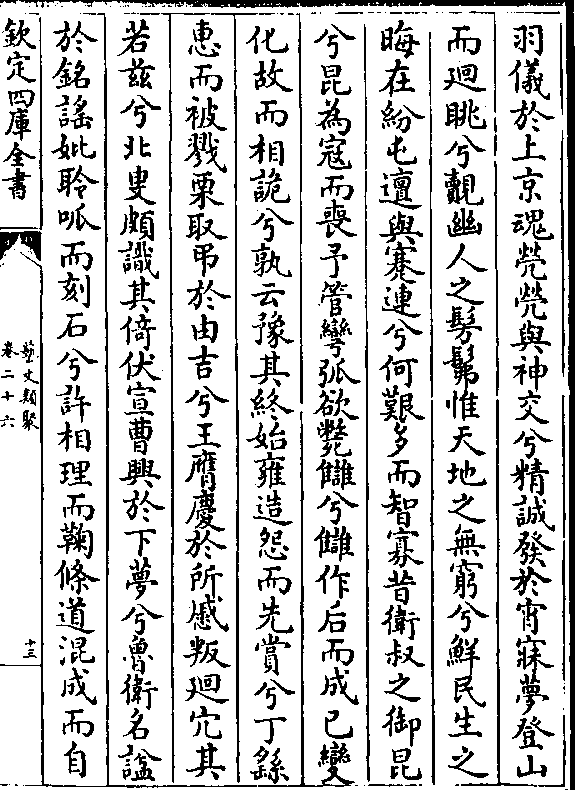 羽儀於上京魂煢煢與神交兮精誠發於宵寐夢登山
而迴眺兮覿幽人之髣髴惟天地之無窮兮鮮民生之
晦在紛屯邅與蹇連兮何艱多而智寡昔衛叔之御昆
兮昆為寇而喪予管彎弧欲斃讎兮讎作后而成已變
化故而相詭兮孰云豫其終始雍造怨而先賞兮丁繇
恵而被戮栗取弔於由吉兮王膺慶於所慼叛迴宂其
若兹兮北叟頗識其倚伏宣曹興於下夢兮魯衛名諡
於銘謠妣聆呱而刻石兮許相理而鞠條道混成而自
欽定四庫全書
藝文類聚
卷二十六
十三